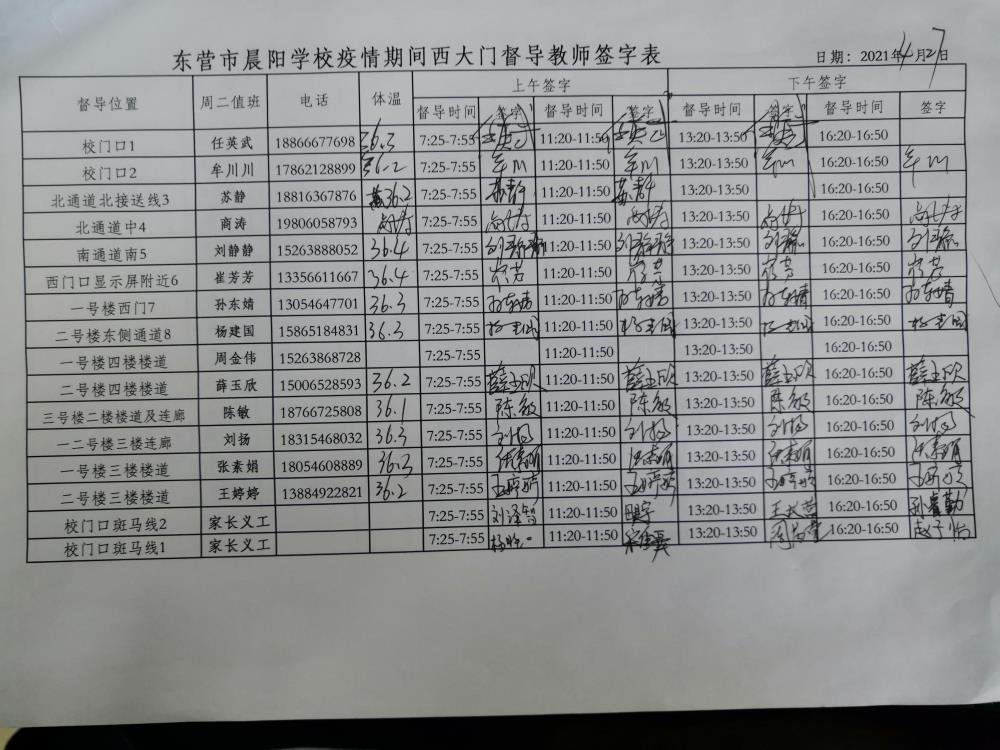 东营市晨阳学校疫情期间西大门督导教师签字表
日期：2021年4月27日
督导位置 周二值班 电话 体温 上午签字 下午签字
督导时间 签字 督导时间 签字 督导时间 签字 督导时间 签字
校门口1 任英武 18866677698 36.3 7:25-7:55 11:20-11:50 13:20-13:50 16:20-16:50
校门口2 牟川川 17862128899 36.2 7:25-7:55 牟川 11:20-11:50 牟川 13:20-13:50 牟川 16:20-16:50 牟川
北通道北接送线3 苏静 18816367876 36.2 7:25-7:55 苏静 11:20-11:50 苏静 13:20-13:50 16:20-16:50
北通道中4 商涛 19806058793 商涛 7:25-7:55 商涛 11:20-11:50 商涛 13:20-13:50 商涛 16:20-16:50 商涛
南通道南5 刘静静 15263888052 36.4 7:25-7:55 刘静静 11:20-11:50 刘静静 13:20-13:50 刘静 16:20-16:50 刘静
西门口显示屏附近6 崔芳芳 13356611667 36.4 7:25-7:55 崔芳 11:20-11:50 崔芳 13:20-13:50 崔芳 16:20-16:50 崔芳
一号楼西门7 孙东婧 13054647701 36.3 7:25-7:55 孙东婧 11:20-11:50 孙东婧 13:20-13:50 孙东婧 16:20-16:50 孙东婧
二号楼东侧通道8 杨建国 15865184831 36.3 7:25-7:55 杨建国 11:20-11:50 杨建国 13:20-13:50 杨建国 16:20-16:50 杨建国
一号楼四楼楼道 周金伟 15263868728 7:25-7:55 11:20-11:50 13:20-13:50 16:20-16:50
二号楼四楼楼道 薛玉欣 15006528593 36.2 7:25-7:55 薛玉欣 11:20-11:50 薛玉欣 13:20-13:50 薛玉欣 16:20-16:50 薛玉欣
三号楼二楼楼道及连廊 陈敏 18766725808 36.1 7:25-7:55 陈敏 11:20-11:50 陈敏 13:20-13:50 陈敏 16:20-16:50 陈敏
一二号楼三楼连廊 刘扬 18315468032 36.3 7:25-7:55 刘扬 11:20-11:50 刘扬 13:20-13:50 刘扬 16:20-16:50 刘扬
一号楼三楼楼道 张素娟 18054608889 36.3 7:25-7:55 张素娟 11:20-11:50 张素娟 13:20-13:50 张素娟 16:20-16:50 张素娟
二号楼三楼楼道 王婷婷 13884922821 36.2 7:25-7:55 王婷婷 11:20-11:50 王婷婷 13:20-13:50 王婷婷 16:20-16:50 王婷婷
校门口斑马线2 家长义工 7:25-7:55 刘泽智 11:20-11:50 田宇 13:20-13:50 16:20-16:50 孙睿勤
校门口斑马线1 家长义工 7:25-7:55 11:20-11:50 13:20-13:50 16:20-16:50 赵子怡